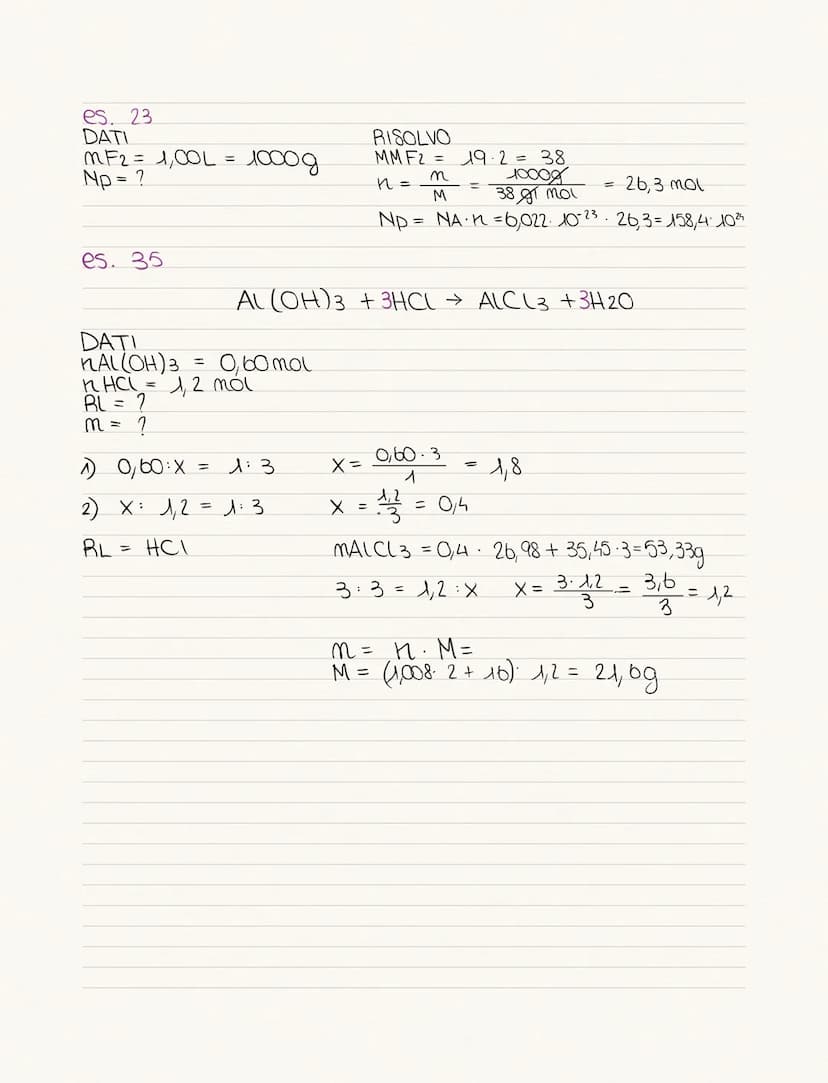 es. 23
DATI
mF2 = 1,00L = 1000g
Np = ?
RISOLVO
MMF2 = 19·2 = 38
n = m/M = 1000g/38 gr mol = 26,3 mol
Np = NA·n = 6,022·10^-23 · 26,3 = 158,4·10^24
es. 35
Al(OH)3 + 3HCl → AlCl3 + 3H2O
DATI
nAl(OH)3 = 0,60mol
nHCl = 1,2 mol
RL = ?
m = ?
1) 0,60:x = 1:3 x = 0,60·3/1 = 1,8
2) x: 1,2 = 1:3 x = 1,2/3 = 0,4
RL = HCl mAlCl3 = 0,4 · 26,98 + 35,45·3 = 53,33g
3:3 = 1,2:x x = 3·1,2/3 = 3,6/3 = 1,2
m = n·M =
M = (1,008·2 + 16)· 1,2 = 21,6g